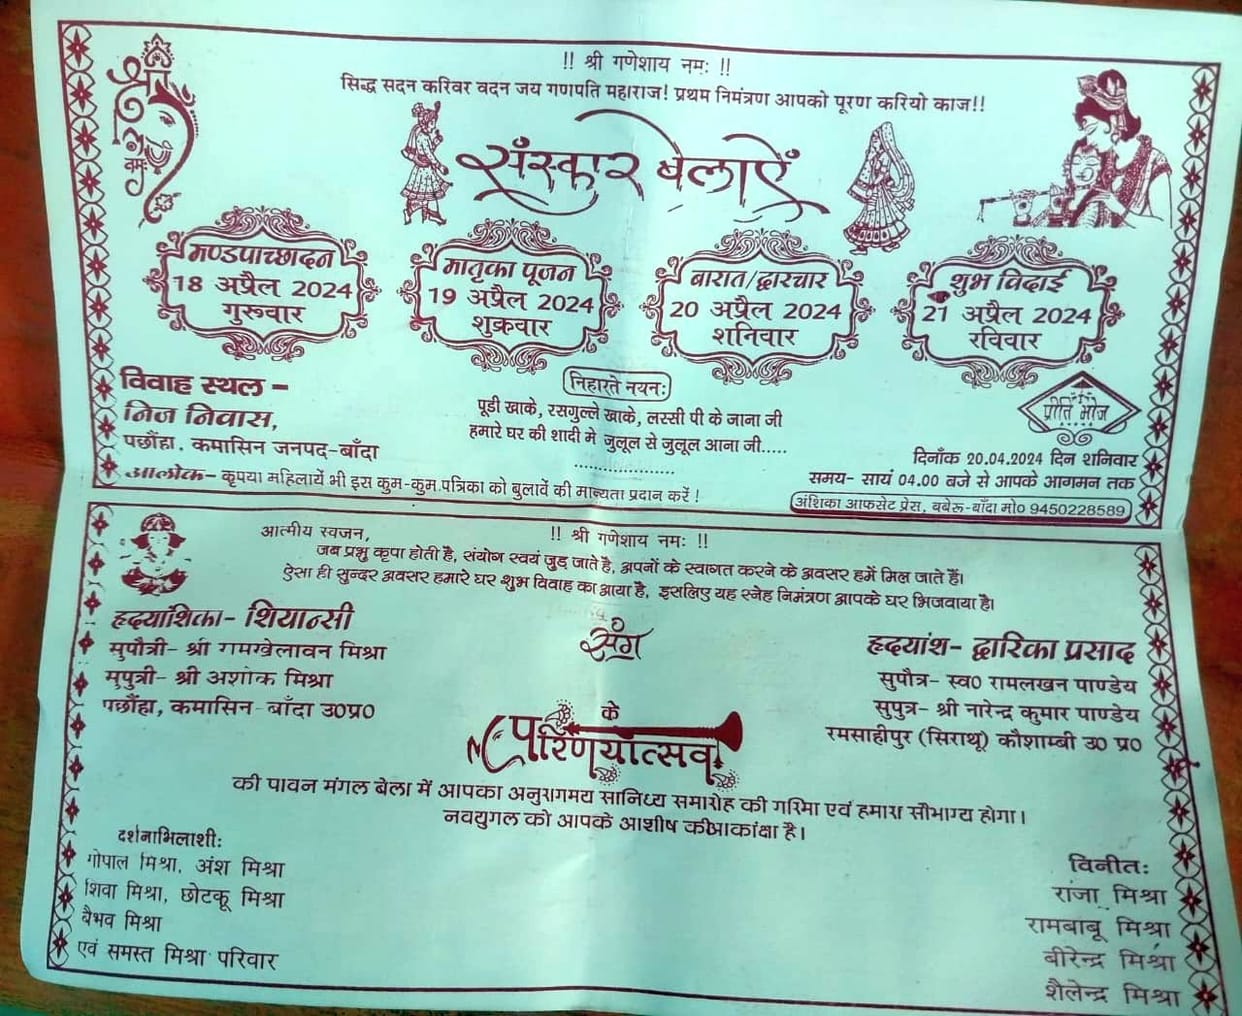 !! श्री गणेशाय नमः !!
सिद्ध सदन करिवर वदन जय गणपति महाराज! प्रथम निमंत्रण आपको पूरण करियो काज!!
संस्कार बेलाऐं
मण्डपाच्छादन
18 अप्रैल 2024
गुरूवार
मातृका पूजन
19 अप्रैल 2024
शुक्रवार
बारात/द्वारचार
20 अप्रैल 2024
शनिवार
शुभ विदाई
21 अप्रैल 2024
रविवार
विवाह स्थल –
निज निवास,
पछौंहा, कमासिन जनपद-बाँदा
निहारते नयनः
पूडी खाके, रसगुल्ले खाके, लस्सी पी के जाना जी
हमारे घर की शादी मे जुलूल से जुलूल आना जी.....
....................
प्रीति भोज
दिनाँक 20.04.2024 दिन शनिवार
समय- सायं 04.00 बजे से आपके आगमन तक
आलोक- कृपया महिलायें भी इस कुम-कुम पत्रिका को बुलावें की मान्यता प्रदान करें !
अंशिका आफसेट प्रेस, बबेरू-बाँदा मो० 9450228589
!! श्री गणेशाय नमः !!
आत्मीय स्वजन,
जब प्रभु कृपा होती है, संयोग स्वयं जुड़ जाते है, अपनों के स्वागत करने के अवसर हमें मिल जाते हैं।
ऐसा ही सुन्दर अवसर हमारे घर शुभ विवाह का आया है, इसलिए यह स्नेह निमंत्रण आपके घर भिजवाया है।
हृदयांशिका- शियान्सी
सुपौत्री- श्री गमखेलावन मिश्रा
सुपुत्री- श्री अशोक मिश्रा
पछौंहा, कमासिन-बाँदा उ०प्र०
संग
हृदयांश- द्वारिका प्रसाद
सुपौत्र- स्व० रामलखन पाण्डेय
सुपुत्र- श्री नारेन्द्र कुमार पाण्डेय
रमसाहीपुर (सिराथू) कौशाम्बी उ० प्र०
के
परिणयोत्सव
की पावन मंगल बेला में आपका अनुरागमय सानिध्य समारोह की गरिमा एवं हमारा सौभाग्य होगा।
नवयुगल को आपके आशीष की आकांक्षा है।
दर्शनाभिलाशी:
गोपाल मिश्रा, अंश मिश्रा
शिवा मिश्रा, छोटकू मिश्रा
वैभव मिश्रा
एवं समस्त मिश्रा परिवार
विनीतः
रांजा मिश्रा
रामबाबू मिश्रा
बीरेन्द्र मिश्रा
शैलेन्द्र मिश्रा